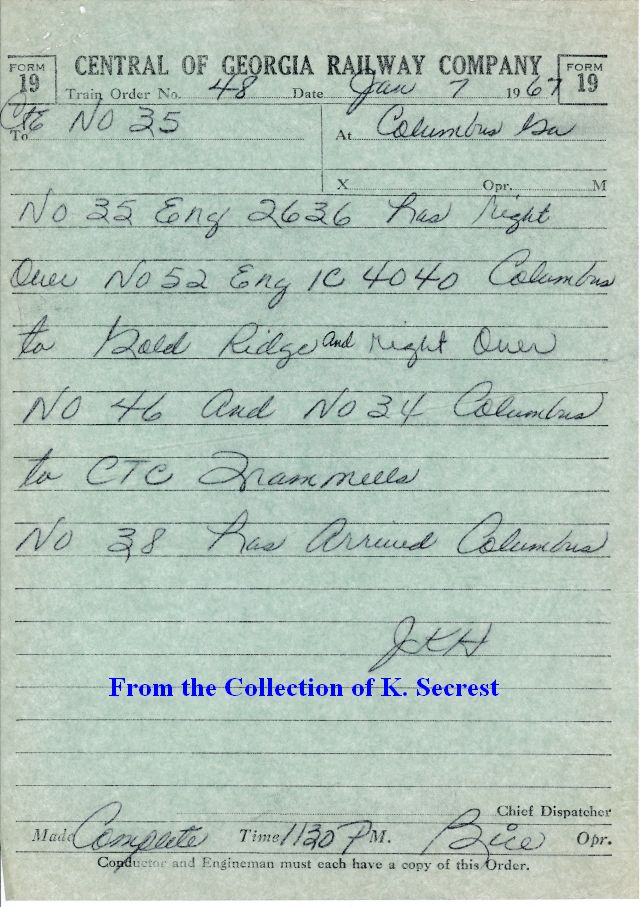 FORM 19 CENTRAL OF GEORGIA RAILWAY COMPANY FORM 19
Train Order No. 48 Date Jan 7 1967
To C&E No 35 At Columbus Ga
X Opr. M
No 35 Eng 2636 has right
Over No 52 Eng IC 4040 Columbus
to Gold Ridge and right Over
No 46 And No 34 Columbus
to CTC Trammells
No 38 has Arrived Columbus
JKH
From the Collection of K. Secrest
Chief Dispatcher
Made Complete Time 1130 PM. Bice Opr.
Conductor and Engineman must each have a copy of this Order.